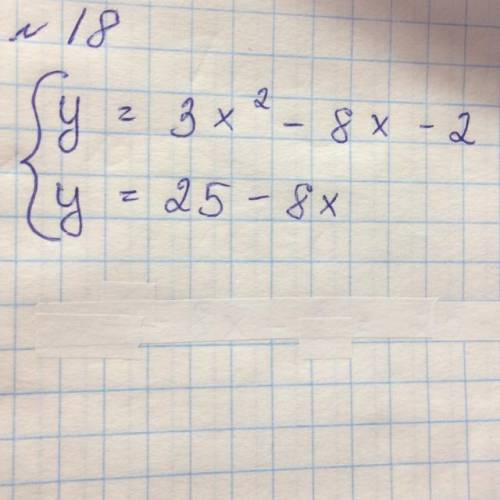 № 18
{ y = 3x² - 8x - 2
y = 25 - 8x